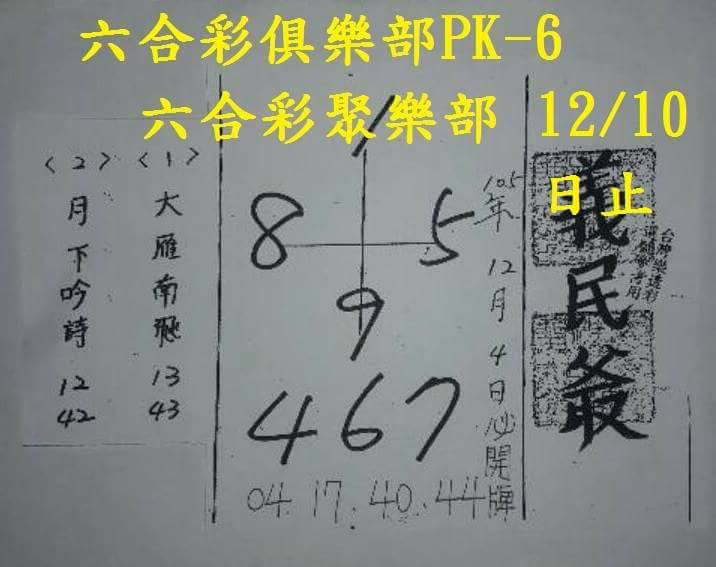 六合彩俱樂部PK-6
六合彩聚樂部 12/10
日止
義民爺
台灣樂透彩
105年12月4日必開牌
1
8 5
9
467
04.17.40.44
<1>
大雁南飛
13
43
<2>
月下吟詩
12
42